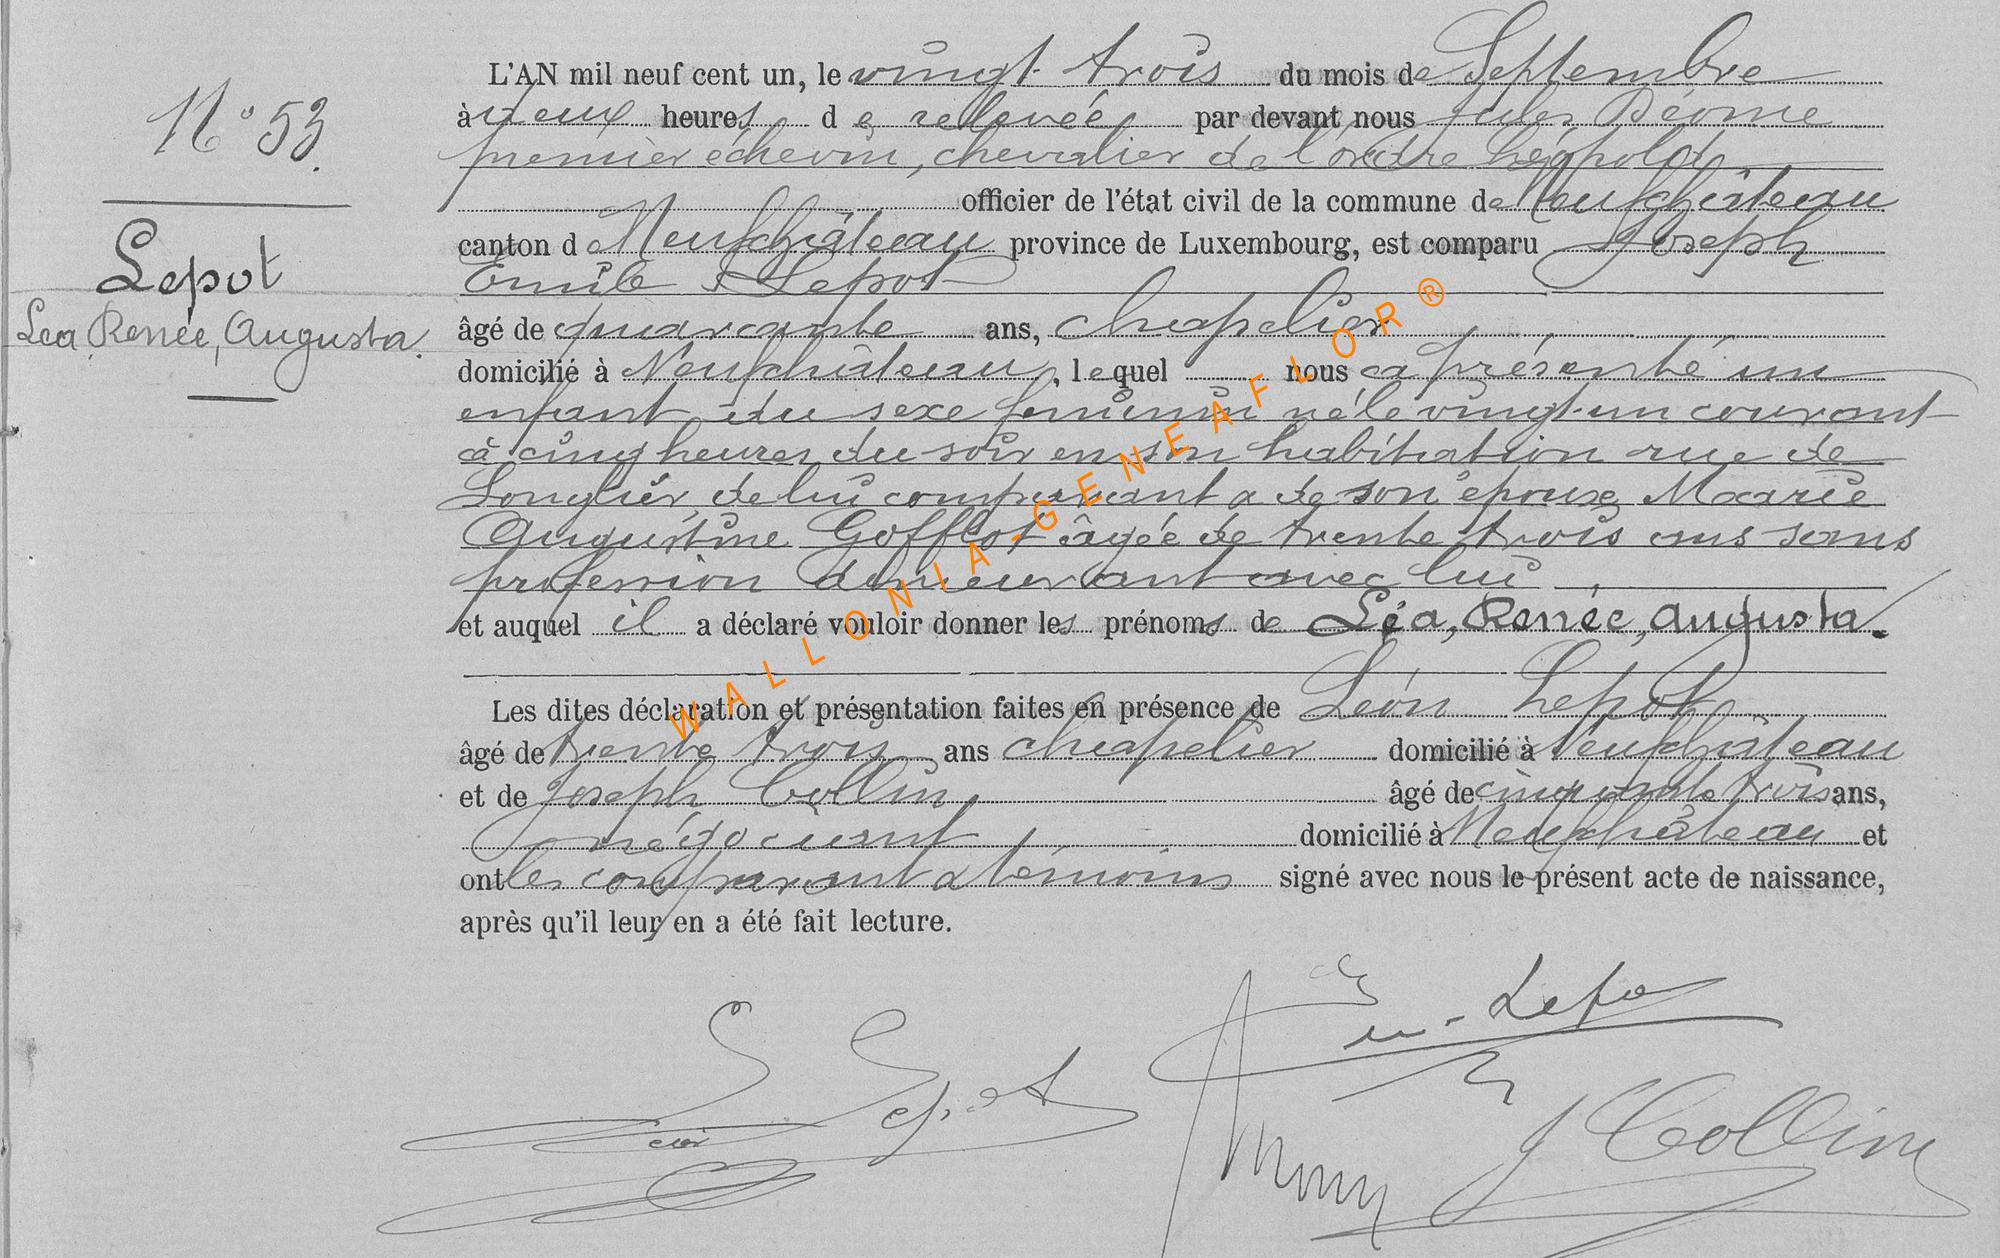 N° 53.
Lepot
Léa, Renée, Augusta.
L'AN mil neuf cent un, le vingt-trois du mois de Septembre
à deux heures de relevée par devant nous Jules Déome
premier échevin, chevalier de l'ordre Léopold,
officier de l'état civil de la commune de Neufchâteau
canton de Neufchâteau province de Luxembourg, est comparu Joseph
Emile Lepot
âgé de quarante ans, chapelier
domicilié à Neufchâteau, lequel nous a présenté un
enfant du sexe feminin né le vingt-un courant
à cinq heures du soir en son habitation rue de
Longlier, de lui comparant & de son épouse Marie
Augustine Gofflot âgée de trente trois ans sans
profession demeurant avec lui,
et auquel il a déclaré vouloir donner les prénoms de Léa, Renée, Augusta.
Les dites déclaration et présentation faites en présence de Léon Lepot
âgé de trente trois ans chapelier domicilié à Neufchâteau
et de Joseph Collin, âgé de cinquante trois ans,
négociant domicilié à Neufchâteau et
ont les comparant & témoins signé avec nous le présent acte de naissance,
après qu'il leur en a été fait lecture.
Em. Lepo
L Lepot
J Collin
WALLONIA-GENEAFLOR®